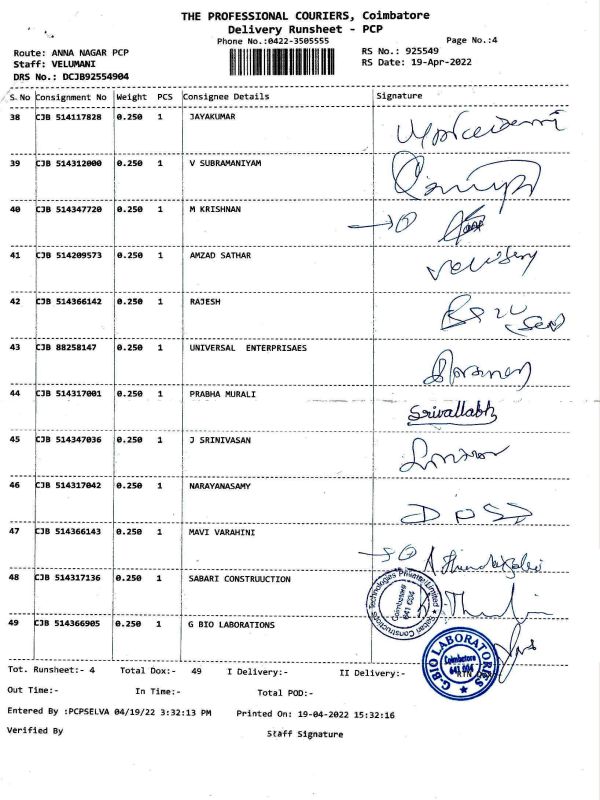 THE PROFESSIONAL COURIERS, Coimbatore
Delivery Runsheet - PCP
Phone No.:0422-3505555
Page No.:4
Route: ANNA NAGAR PCP
RS No.: 925549
Staff: VELUMANI
RS Date: 19-Apr-2022
DRS No.: DCJB92554904
S.No Consignment No Weight PCS Consignee Details Signature
38 CJB 514117828 0.250 1 JAYAKUMAR
39 CJB 514312000 0.250 1 V SUBRAMANIYAM
40 CJB 514347720 0.250 1 M KRISHNAN
41 CJB 514209573 0.250 1 AMZAD SATHAR
42 CJB 514366142 0.250 1 RAJESH
43 CJB 88258147 0.250 1 UNIVERSAL ENTERPRISAES
44 CJB 514317001 0.250 1 PRABHA MURALI
Srivallabh
45 CJB 514347036 0.250 1 J SRINIVASAN
46 CJB 514317042 0.250 1 NARAYANASAMY
47 CJB 514366143 0.250 1 MAVI VARAHINI
48 CJB 514317136 0.250 1 SABARI CONSTRUUCTION
Technologies Private Limited
Coimbatore
641 004
49 CJB 514366905 0.250 1 G BIO LABORATIONS
G-BIO LABORATORIES
Coimbatore
641 004
Tot. Runsheet:- 4 Total Dox:- 49 I Delivery:- II Delivery:-
Out Time:- In Time:- Total POD:-
Entered By :PCPSELVA 04/19/22 3:32:13 PM Printed On: 19-04-2022 15:32:16
Verified By Staff Signature